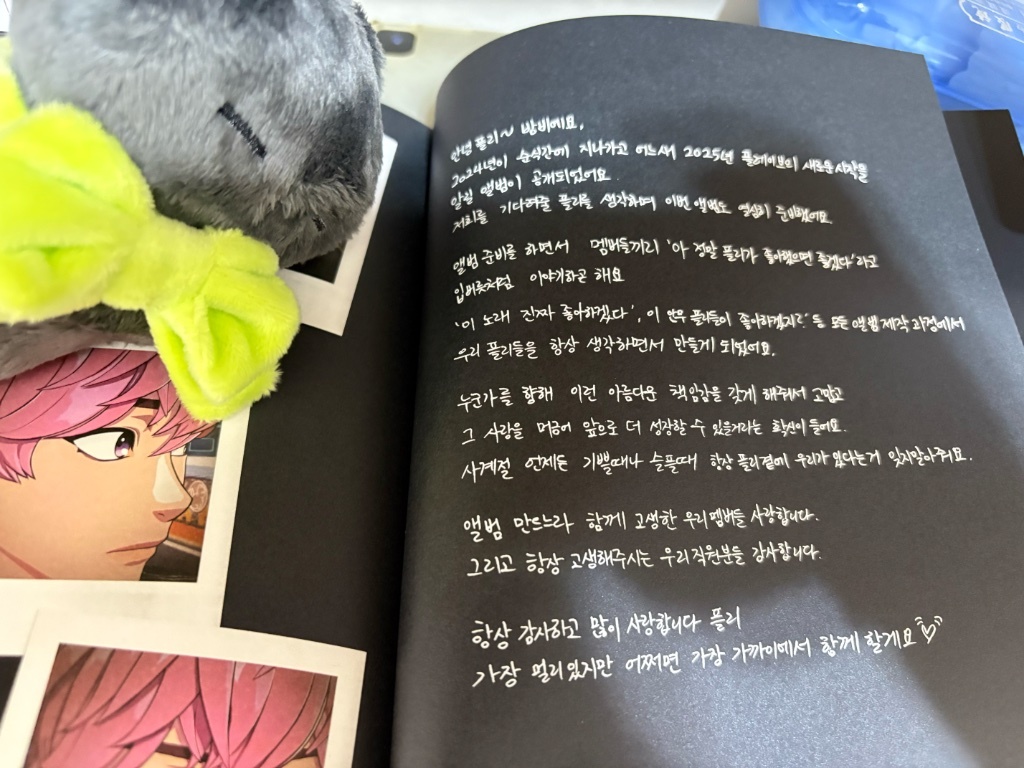 안녕 플리~ 밤비예요,
2024년이 순식간에 지나가고 어느새 2025년 플레이브의 새로운 시작을
알릴 앨범이 공개되었어요.
저희를 기다려줄 플리를 생각하며 이번 앨범도 열심히 준비했어요
앨범 준비를 하면서 멤버들끼리 '아 정말 플리가 좋아했으면 좋겠다'라고
입버릇처럼 이야기하곤 해요
'이 노래 진짜 좋아하겠다', '이 안무 플리들이 좋아하겠지?' 등 모든 앨범 제작 과정에서
우리 플리들을 항상 생각하면서 만들게 되었어요.
누군가를 향해 이런 아름다운 책임감을 갖게 해줘서 고맙고
그 사랑을 머금어 앞으로 더 성장할 수 있을거라는 확신이 들어요.
사계절 언제든 기쁠때나 슬플때 항상 플리곁에 우리가 있다는거 잊지말아줘요.
앨범 만드느라 함께 고생한 우리멤버들 사랑합니다.
그리고 항상 고생해주시는 우리직원분들 감사합니다.
항상 감사하고 많이 사랑합니다 플리
가장 멀리있지만 어쩌면 가장 가까이에서 함께 할게요